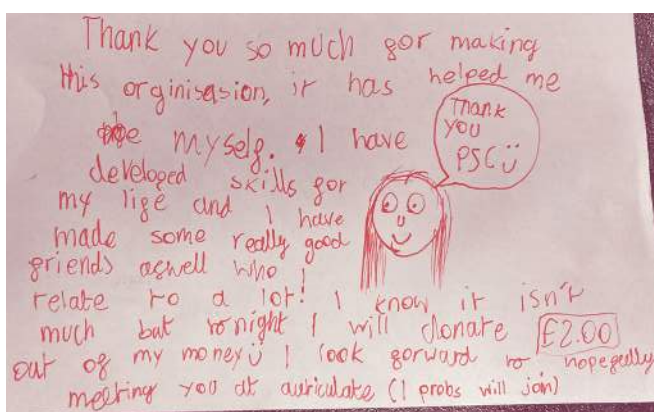 Thank you so much for making
this orginisasion, it has helped me
be myself. I have
developed skills for
my life and I have
made some really good
friends aswell who I
relate to a lot! I know it isn't
much but tonight I will donate £2.00
out of my money I look forward to hopefully
meeting you at auriculate (I probs will join)
Thank
you
PSC